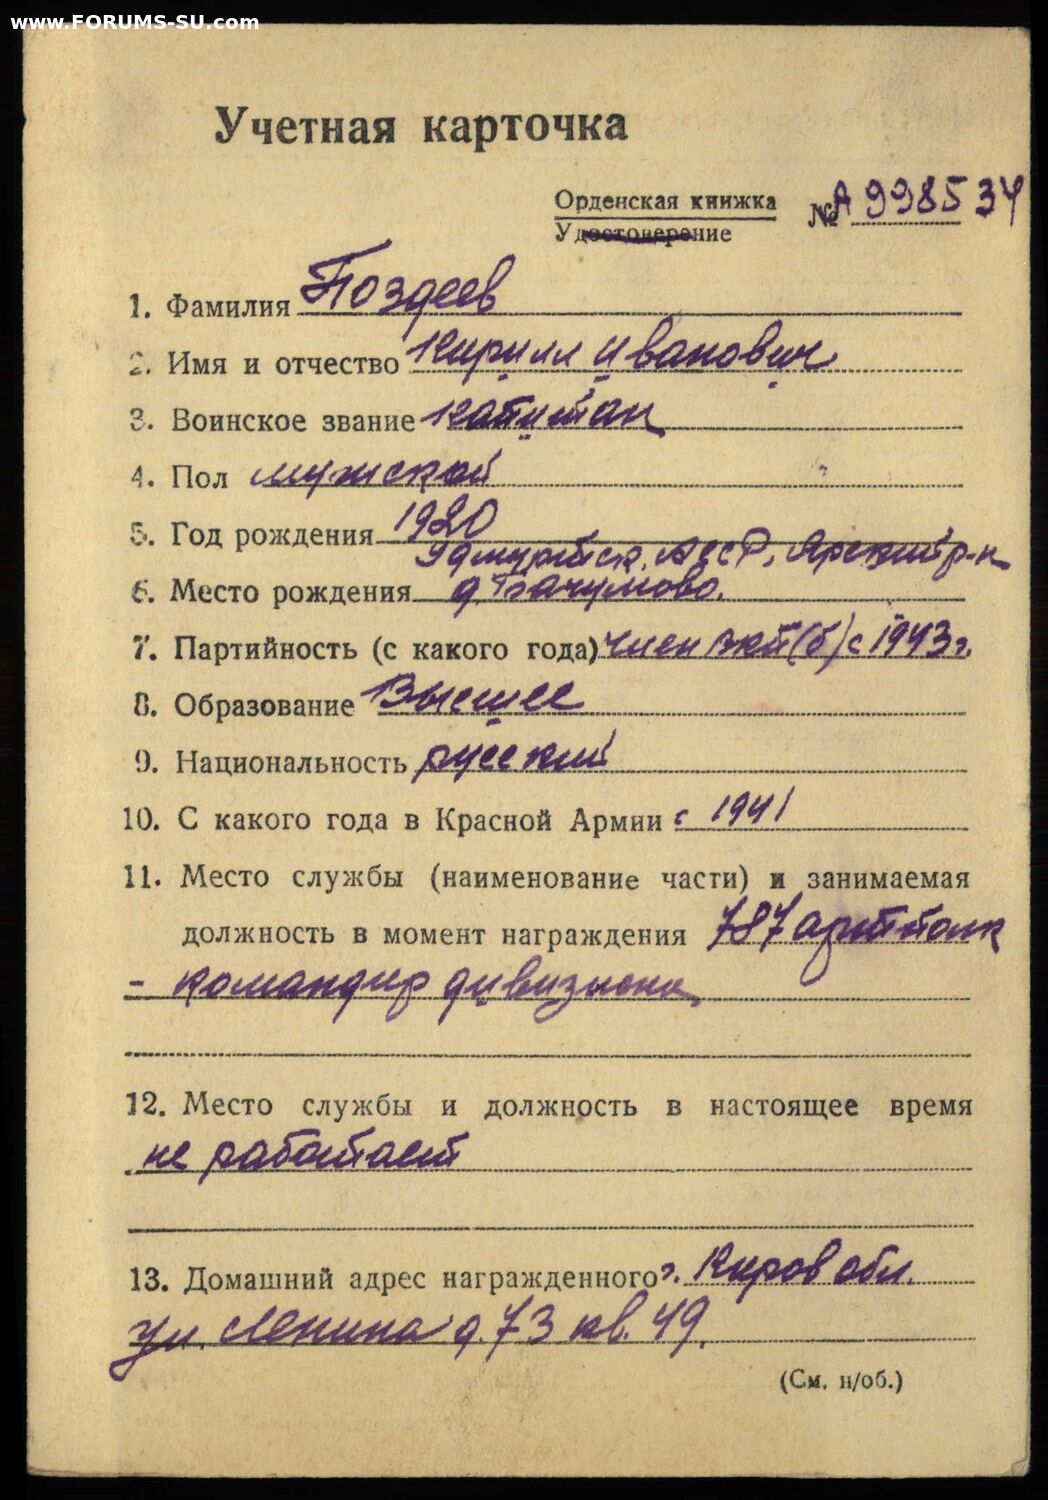 www.FORUMS-SU.com
Учетная карточка
Орденская книжка № А 998534
Удостоверение
1. Фамилия Поздеев
2. Имя и отчество Кирилл Иванович
3. Воинское звание капитан
4. Пол мужской
5. Год рождения 1920
Удмуртск. АССР, Ярский р-н
6. Место рождения д. Бачумово.
7. Партийность (с какого года) член ВКП(б) с 1943 г.
8. Образование Высшее
9. Национальность русский
10. С какого года в Красной Армии с 1941
11. Место службы (наименование части) и занимаемая
должность в момент награждения 787 артполк
- командир дивизиона
12. Место службы и должность в настоящее время
не работает
13. Домашний адрес награжденного г. Киров обл.
ул. Ленина д. 73 кв. 49.
(См. н/об.)